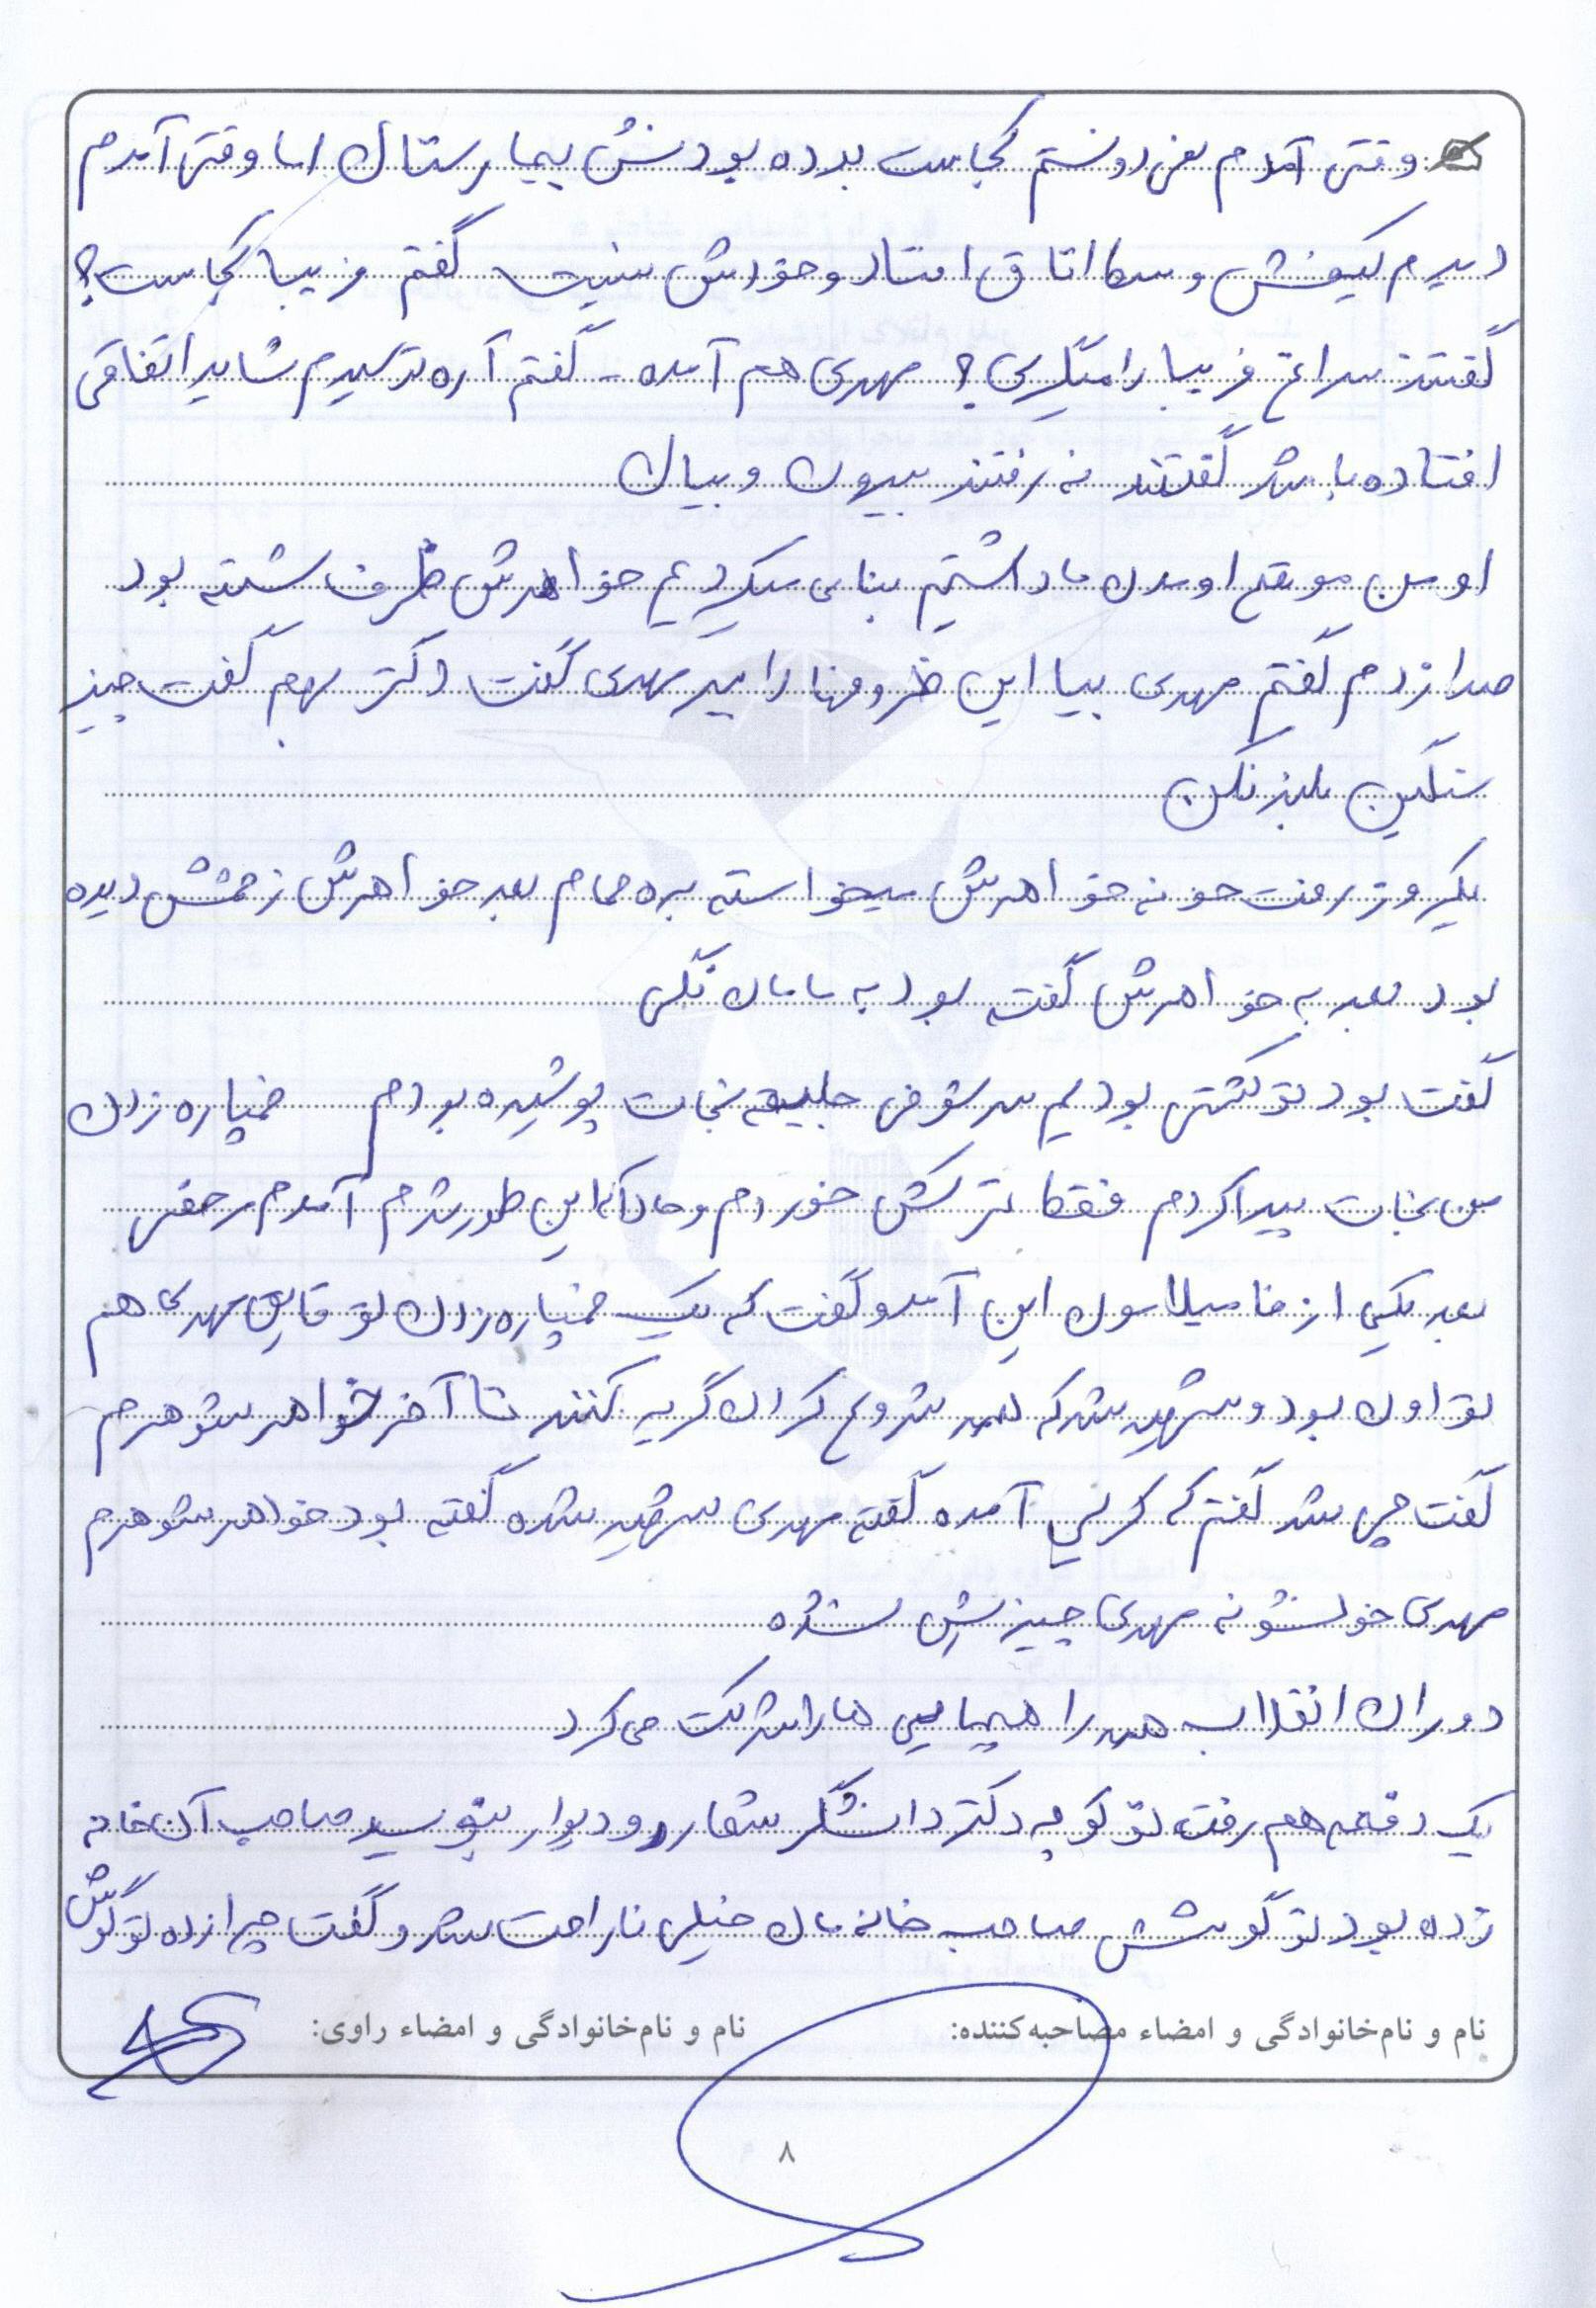 وقتی آمدم نمی دونستم کجاست برده بودنش بیمارستان اما وقتی آمدم
دیدم کیفش وسط اتاق افتاد و خودش نیست گفتم فریبا کجاست؟
گفتند سراغ فریبا را میگیری؟ مهدی هم آمده - گفتم آره ترسیدم شاید اتفاقی
افتاده باشد گفتند نه رفتند بیرون و بیان
اومدن ما داشتیم بنایی میکردیم خواهرش ظرف شسته بود
صدا زدم گفتم مهدی بیا این ظروفها را ببر مهدی گفت دکتر بهم گفت چیز
سنگین بلند نکن
یکروز رفت خونه خواهرش میخواسته بره حمام بعد خواهرش زخمش دیده
بود بعد به خواهرش گفته بود به مامان نگی
گفت بود تو کشتی بودیم جلیقه نجات پوشیده بودم خمپاره زدن
من نجات پیدا کردم فقط ترکش خوردم و حالا که این طور شدم آمدم مرخصی
بعد یکی از فامیلامون این آمد و گفت که یک خمپاره زدن تو قایق مهدی هم
تو اون بود و شهید شد که همه شروع کردن گریه کنند تا آخر خواهر شوهرم
گفت چی شد گفتم که آمده گفته مهدی شهید شده گفته بود خواهر شوهرم
مهدی خونشونه مهدی چیزیش نشده
دوران انقلاب همه راهپیمایی ها را شرکت می کرد
یک دفعه هم رفت تو کوچه دکتر دانشگر شعار رو دیوار بنویسد صاحب آن خانه
زده بود تو گوشش صاحب خانه مان خیلی ناراحت شد و گفت چرا زده تو گوش
نام و نام‌خانوادگی و امضاء مصاحبه‌کننده: نام و نام‌خانوادگی و امضاء راوی:
۸